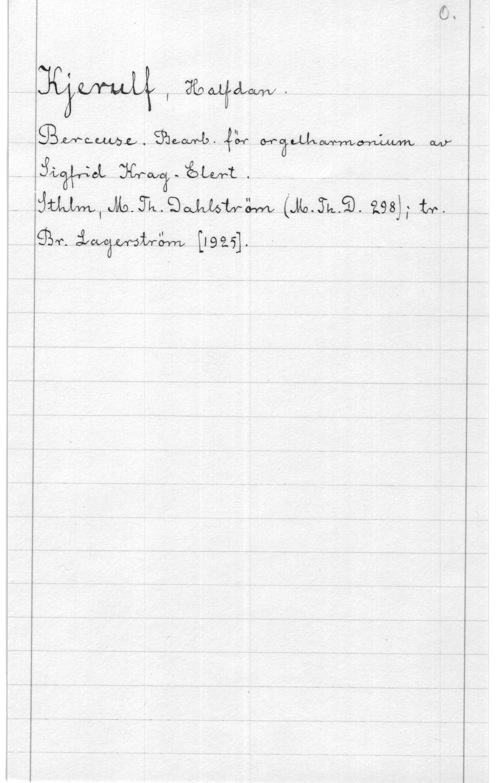 O.
Kjerulf, Halfdan.
Berceuse. Bearb. för orgelharmonium av
Sigfrid Krag-Elert.
Sthlm, M. Th. Dahlström (M. Th. D. 298); tr.
Br. Lagerström [1925].